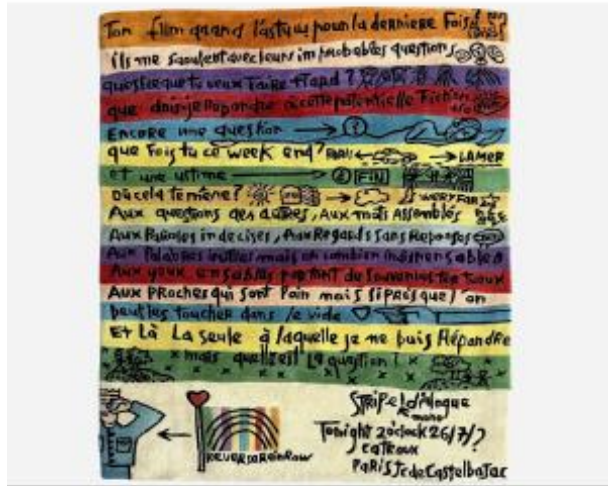 Ton film quand l'astu vu pour la derniere Fois
ils me saoulent avec leurs improbables questions
quesceque tu veux faire + tard ?
que dois-je Repondre à cette potentielle Fiction
Encore une question → ?
que Fais tu ce week end? PARIS ← → LA MER
et une ultime → FIN
Où cela te mène? → VERY FAR
Aux questions des autres, Aux mots Assemblés
Aux Paroles indecises, Aux Regards Sans Reponses
Aux Palabres inutiles mais ô combien indispensables
Aux yeux ensablés portant de souvenirs
Aux PRoches qui sont loin mais si près que l'on
peut les toucher dans le vide
Et Là La seule à laquelle je ne puis Répondre
x mais quelle est La question ! x x
Stripe! dialogue
mano
Tonight 2 o'clock 26/7/?
← REVERSA RAINBOW
cateaux
PARIS JC de Castelbajac